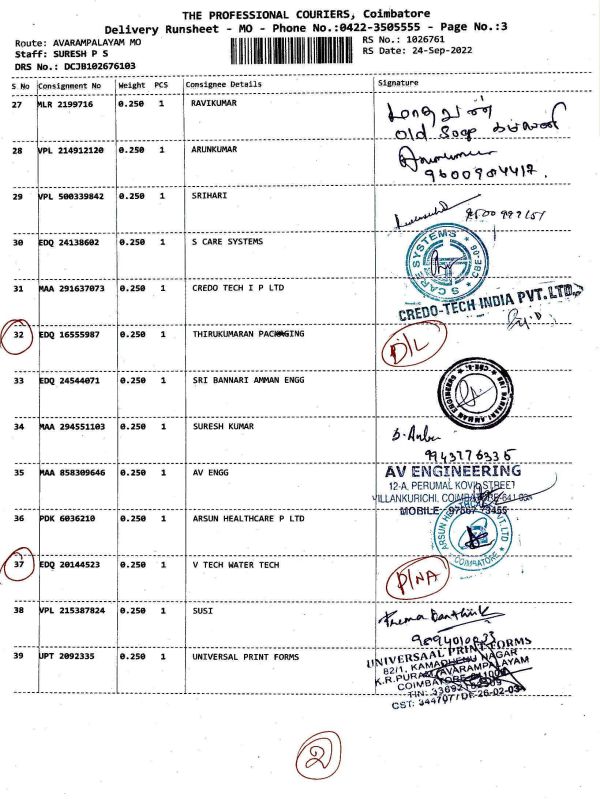 THE PROFESSIONAL COURIERS, Coimbatore
Delivery Runsheet - MO - Phone No.:0422-3505555 - Page No.:3
Route: AVARAMPALAYAM MO
RS No.: 1026761
Staff: SURESH P S
RS Date: 24-Sep-2022
DRS No.: DCJB102676103
S No Consignment No Weight PCS Consignee Details Signature
27 MLR 2199716 0.250 1 RAVIKUMAR
மாதவன்
old Soap கம்பனி
28 VPL 214912120 0.250 1 ARUNKUMAR
Arunkumar
29 VPL 500339842 0.250 1 SRIHARI
30 EDQ 24138602 0.250 1 S CARE SYSTEMS
S CARE SYSTEMS
CBE-06
31 MAA 291637073 0.250 1 CREDO TECH I P LTD
CREDO-TECH INDIA PVT.LTD.,
32 EDQ 16555987 0.250 1 THIRUKUMARAN PACKAGING
D/L
33 EDQ 24544071 0.250 1 SRI BANNARI AMMAN ENGG
SRI BANNARI AMMAN ENGINEERING
34 MAA 294551103 0.250 1 SURESH KUMAR
9943776335
35 MAA 858309646 0.250 1 AV ENGG
AV ENGINEERING
12-A, PERUMAL KOVIL STREET
VILLANKURICHI, COIMBATORE-641 035
MOBILE: 97867 73455
36 PDK 6036210 0.250 1 ARSUN HEALTHCARE P LTD
ARSUN HEALTHCARE PVT LTD
COIMBATORE
37 EDQ 20144523 0.250 1 V TECH WATER TECH
P/NA
38 VPL 215387824 0.250 1 SUSI
39 UPT 2092335 0.250 1 UNIVERSAL PRINT FORMS
UNIVERSAAL PRINT FORMS
82/1, KAMADHENU NAGAR
K.R.PURAM, AVARAMPALAYAM
COIMBATORE-641006
CST: 344707/DT-26-02-03
2